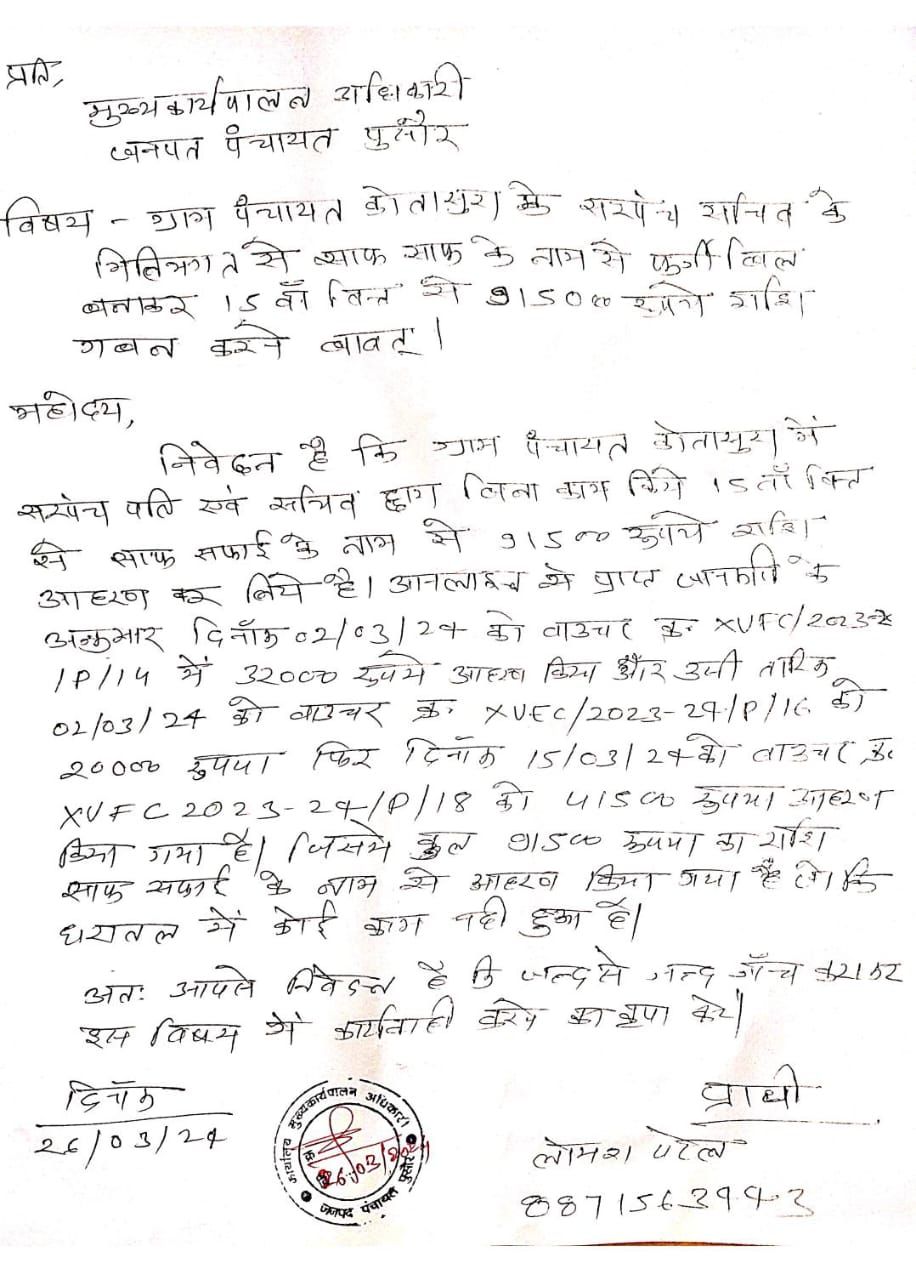 प्रति,
मुख्यकार्यपालन अधिकारी
जनपत पंचायत पुसौर
विषय - ग्राम पंचायत कोतासुरा के सरपंच सचिव के
मिलिभगत से साफ साफ के नाम से फर्जी बिल
बनाकर 15 वाँ वित्त से 91500 रुपये राशि
गबन करने बावत् ।
महोदय,
निवेदन है कि ग्राम पंचायत कोतासुरा में
सरपंच पति एवं सचिव द्वारा बिना काम किये 15 वाँ वित्त
से साफ सफाई के नाम से 91500 रुपये राशि
आहरण कर लिये है। आनलाइन से प्राप्त जानकारी के
अनुसार दिनाँक 02/03/24 को वाउचर क्र. XVFC/2023-2
/P/14 में 32000 रुपये आहरण किया और उसी तारिक
02/03/24 को वाउचर क्र. XVFC/2023-24/P/16 को
20000 रुपया फिर दिनाँक 15/03/24 को वाउचर क्र
XVFC 2023-24/P/18 को 41500 रुपया आहरण
किया गया है। जिसमे कुल 91500 रुपया का राशि
साफ सफाई के नाम से आहरण किया गया है कि
धरातल में कोई काम नही हुआ है।
अतः आपसे निवेदन है कि जल्द से जल्द जाँच कराकर
इस विषय में कार्यवाही करने का कृपा करे।
दिनाँक
26/03/24
प्रार्थी
लोमश पटेल
8871563943
कार्यालय मुख्यकार्यपालन अधिकारी
26/03/2024
जनपद पंचायत पुसौर